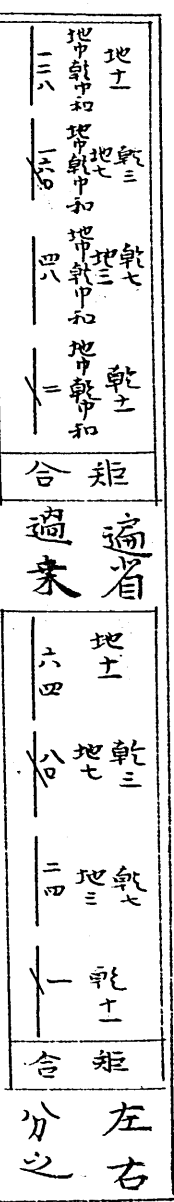 地十一
地巾乾巾和
一二八
乾三
地七
地巾乾巾和
一六〇
乾七
地三
地巾乾巾和
四八
乾十一
地巾乾巾和
二
矩
合
遍省
過乗
地十一
六四
乾三
地七
八〇
乾七
地三
二四
乾十一
一
矩
合
左右
分之